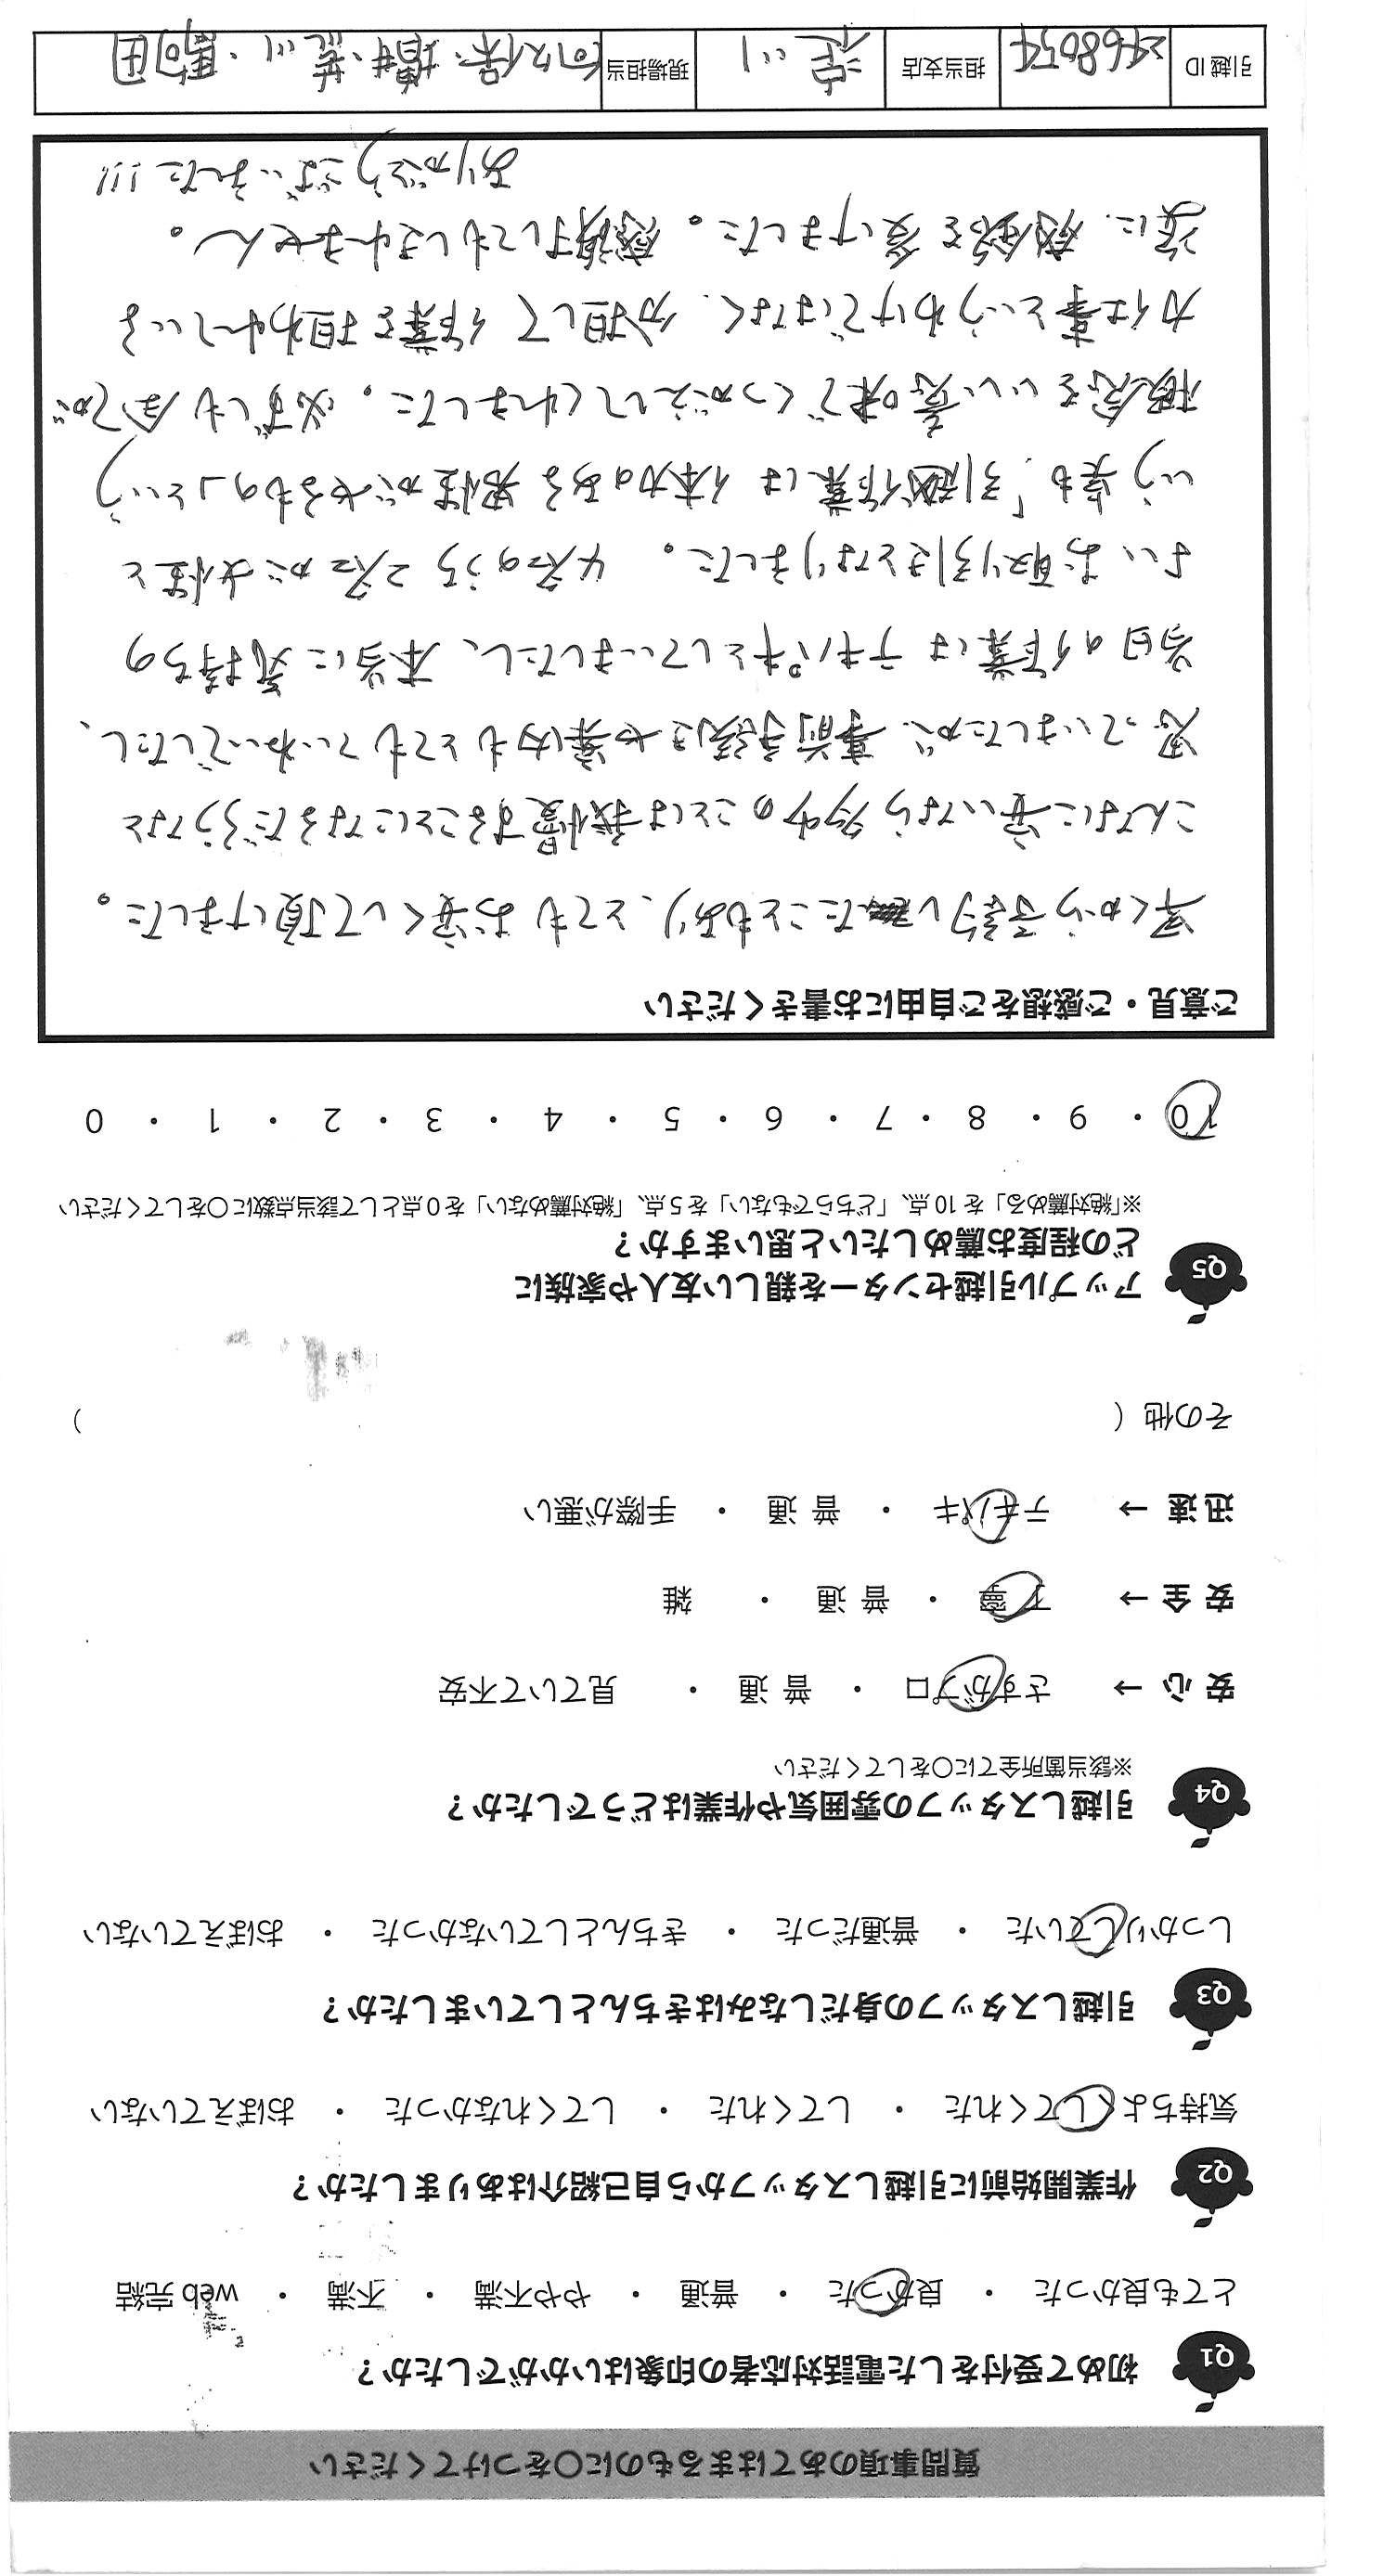 質問事項のあてはまるものに〇をつけてください
Q1 初めて受付をした電話対応者の印象はいかがでしたか？
とても良かった ・ 良かった ・ 普通 ・ やや不満 ・ 不満 ・ web 完結
Q2 作業開始前に引越しスタッフから自己紹介はありましたか？
気持ちよくしてくれた ・ してくれた ・ してくれなかった ・ おぼえていない
Q3 引越しスタッフの身だしなみはきちんとしていましたか？
しっかりしていた ・ 普通だった ・ きちんとしていなかった ・ おぼえていない
Q4 引越しスタッフの雰囲気や作業はどうでしたか？
※該当箇所全てに〇をしてください
安 心 → さすがプロ ・ 普 通 ・ 見ていて不安
安 全 → 丁 寧 ・ 普 通 ・ 雑
迅 速 → テキパキ ・ 普 通 ・ 手際が悪い
その他（ ）
Q5 アップル引越センターを親しい友人や家族に
どの程度お薦めしたいと思いますか？
※「絶対薦める」を 10 点、「どちらでもない」を 5 点、「絶対薦めない」を 0 点として該当点数に〇をしてください
10 ・ 9 ・ 8 ・ 7 ・ 6 ・ 5 ・ 4 ・ 3 ・ 2 ・ 1 ・ 0
ご意見・ご感想をご自由にお書きください
早くから予約したこともあり、とてもお安くして頂けました。
こんなに安いなら多少のことは我慢することになるだろうなと
思っていましたが、事前手続きや案内もとてもていねいでしたし、
当日の作業はテキパキとしていましたし、本当に気持ちの
よいお取り引きとなりました。 4名のうち2名が女性と
いう点も「引越作業は体力のある男性がやるもの」という
概念をいい意味でくつがえしてくれました。必ずしも全てが
力仕事というわけではなく、分担して作業を担われている
姿に、感銘を受けました。感謝してもしきれません。
ありがとうございました!!!
引越 ID 2468054 担当支店 淀川 現場担当 河久保、増井、荒川、